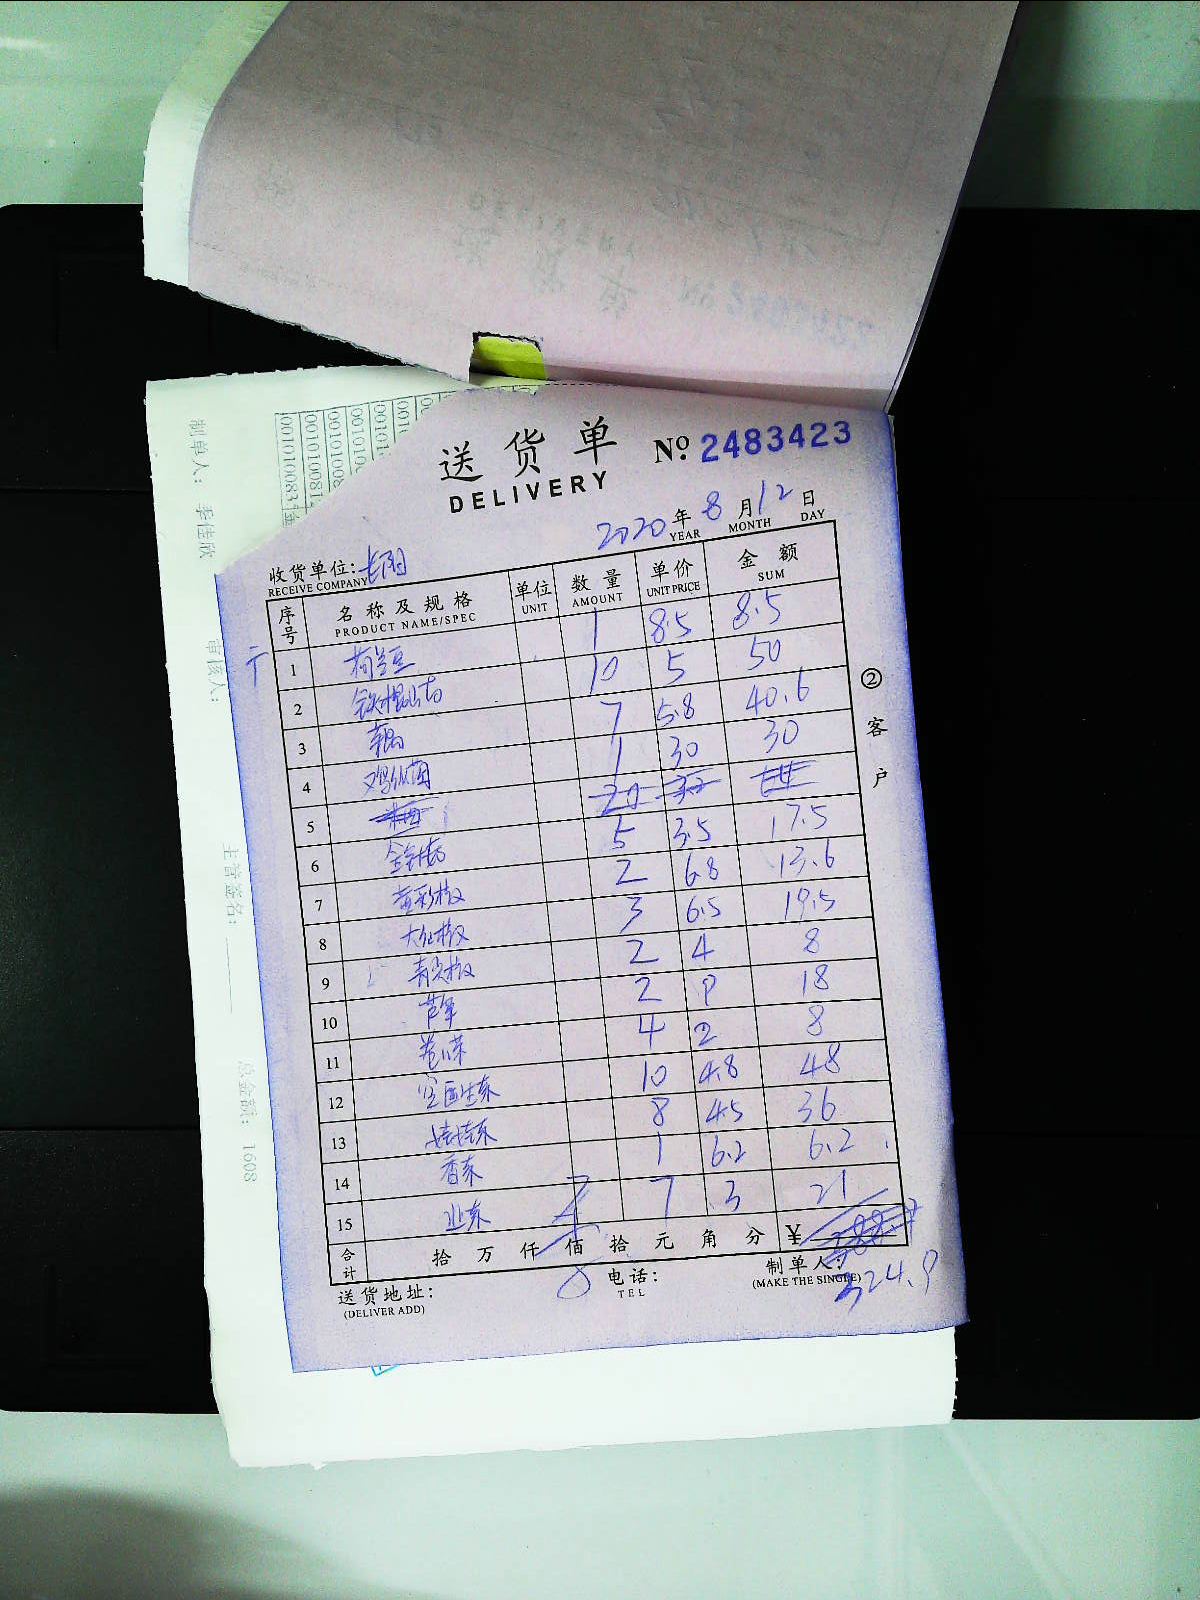 送货单 No. 2483423
DELIVERY
2020年 8月 12日
YEAR MONTH DAY
收货单位:
RECEIVE COMPANY
序号 名称及规格 单位 数量 单价 金额
PRODUCT NAME/SPEC UNIT AMOUNT UNIT PRICE SUM
1 荷兰豆 1 8.5 8.5
2 铁棍山药 10 5 50
3 藕 7 5.8 40.6
4 鸡枞菌 1 30 30
5
6 金针菇 5 3.5 17.5
7 黄彩椒 2 6.8 13.6
8 大红椒 3 6.5 19.5
9 青尖椒 2 4 8
10 芦笋 2 9 18
11 4 2 8
12 10 4.8 48
13 娃娃菜 8 4.5 36
14 香菜 1 6.2 6.2
15 7 3 21
合计 拾万仟佰拾元角分 ¥
324.9
送货地址: 电话: 制单人:
(DELIVER ADD) TEL (MAKE THE SINGLE)
②客户
制单人: 李佳欣
审核人:
主管签名:
总金额: 1608